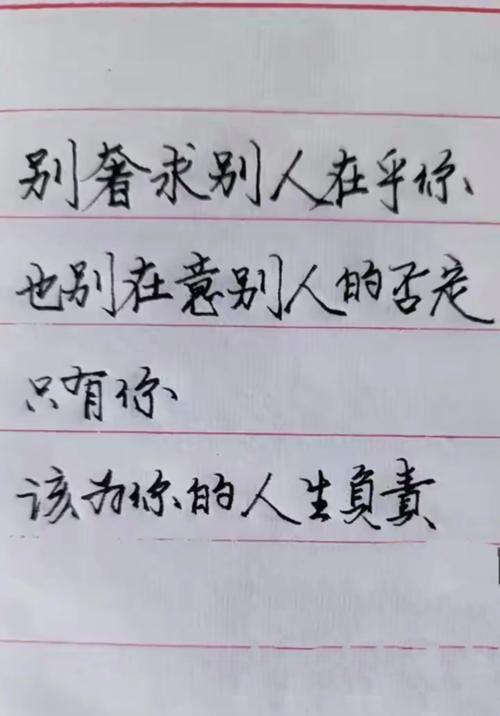 别奢求别人在乎你
也别在意别人的否定
只有你
该为你的人生負責